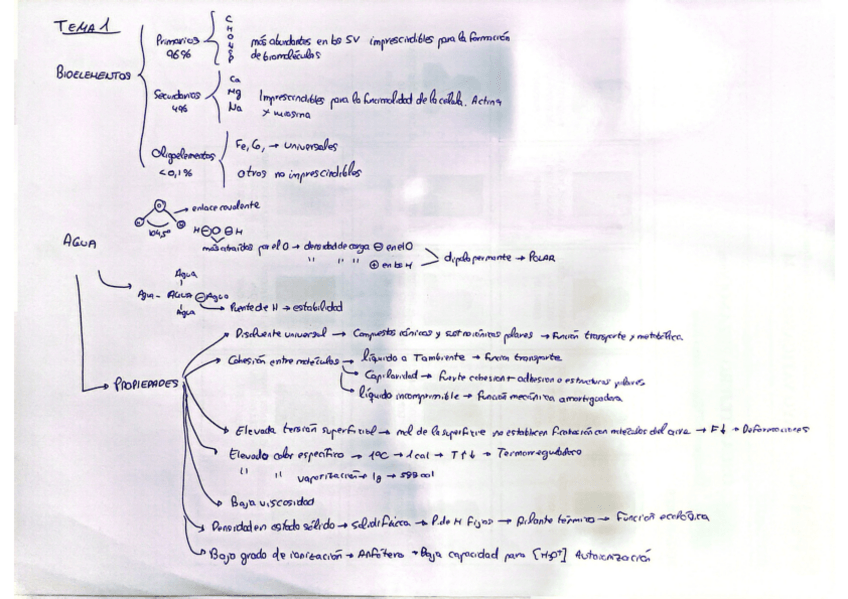 TEMA 1
BIOELEMENTOS
Primarios 96%
C H O N S P
más abundantes en los SV imprescindibles para la formación
de biomoléculas
Secundarios 4%
Ca
Mg
Na
Imprescindibles para la funcionalidad de la célula. Actina
y miosina
Oligoelementos <0,1%
Fe, Co, → universales
otros no imprescindibles
AGUA
enlace covalente
104,5º
H⊖O⊖H
más atraídos por el O → densidad de carga ⊖ en el O
" " " ⊕ en los H
dipolo permante → POLAR
Agua
Agua - AGUA ⊖ Agua
Agua
Puente de H → estabilidad
PROPIEDADES
Disolvente universal → Compuestos iónicos y polares → Función transporte y metabólica.
Cohesión entre moléculas → líquido a T ambiente → función transporte
Capilaridad → fuerte cohesion + adhesion a estructuras polares
líquido incompresible → Función mecánica amortiguadora
Elevada tensión superficial → mol de la superficie no establecen con moléculas del aire → F↓ → Deformaciones
Elevado calor específico → 1ºC → 1 cal → T↑↓ → Termorreguladora
" " vaporización → 1g →
Baja viscosidad
Densidad en estado sólido → → P. de H fijos → térmico → Función ecológica
Bajo grado de ionización → Anfótero → Baja capacidad para [H₃O⁺] Autoionización